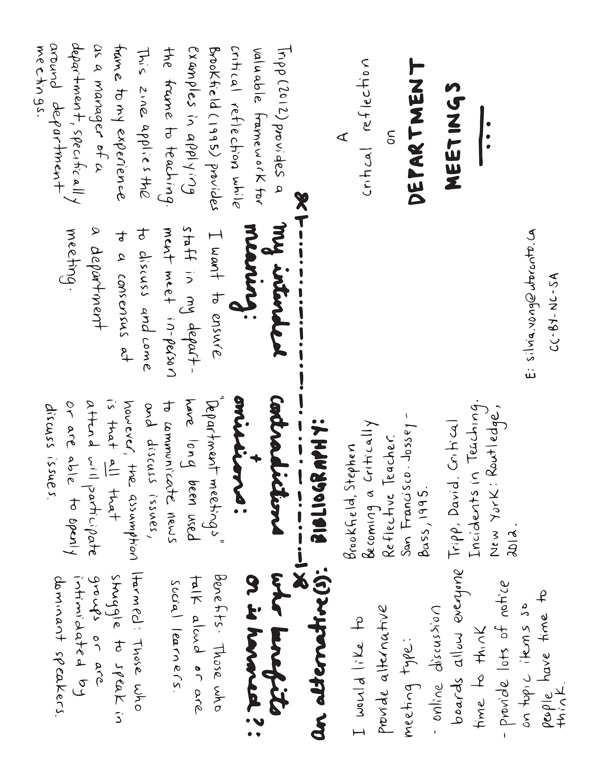 A
critical reflection
on
DEPARTMENT
MEETINGS
...
Tripp (2012) provides a
valuable framework for
critical reflection while
Brookfield (1995) provides
examples in applying
the frame to teaching.
This zine applies the
frame to my experience
as a manager of a
department, specifically
around department
meetings.
my intended
meaning:
I want to ensure
staff in my depart-
ment meet in-person
to discuss and come
to a consensus at
a department
meeting.
contradictions
+
omissions:
"Department meetings"
have long been used
to communicate news
and discuss issues,
however, the assumption
is that all that
attend will participate
or are able to openly
discuss issues.
who benefits
or is harmed?:
Benefits: Those who
talk aloud or are
social learners.
Harmed: Those who
struggle to speak in
groups or are
intimidated by
dominant speakers.
an alternative(s):
I would like to
provide alternative
meeting type:
- online discussion
boards allow everyone
time to think
- Provide lots of notice
on topic items so
people have time to
think.
BIBLIOGRAPHY:
Brookfield, Stephen
Becoming a Critically
Reflective Teacher.
San Francisco: Jossey-
Bass, 1995.
Tripp, David. Critical
Incidents in Teaching.
New York: Routledge,
2012.
E: silvia.vong@utoronto.ca
CC-BY-NC-SA